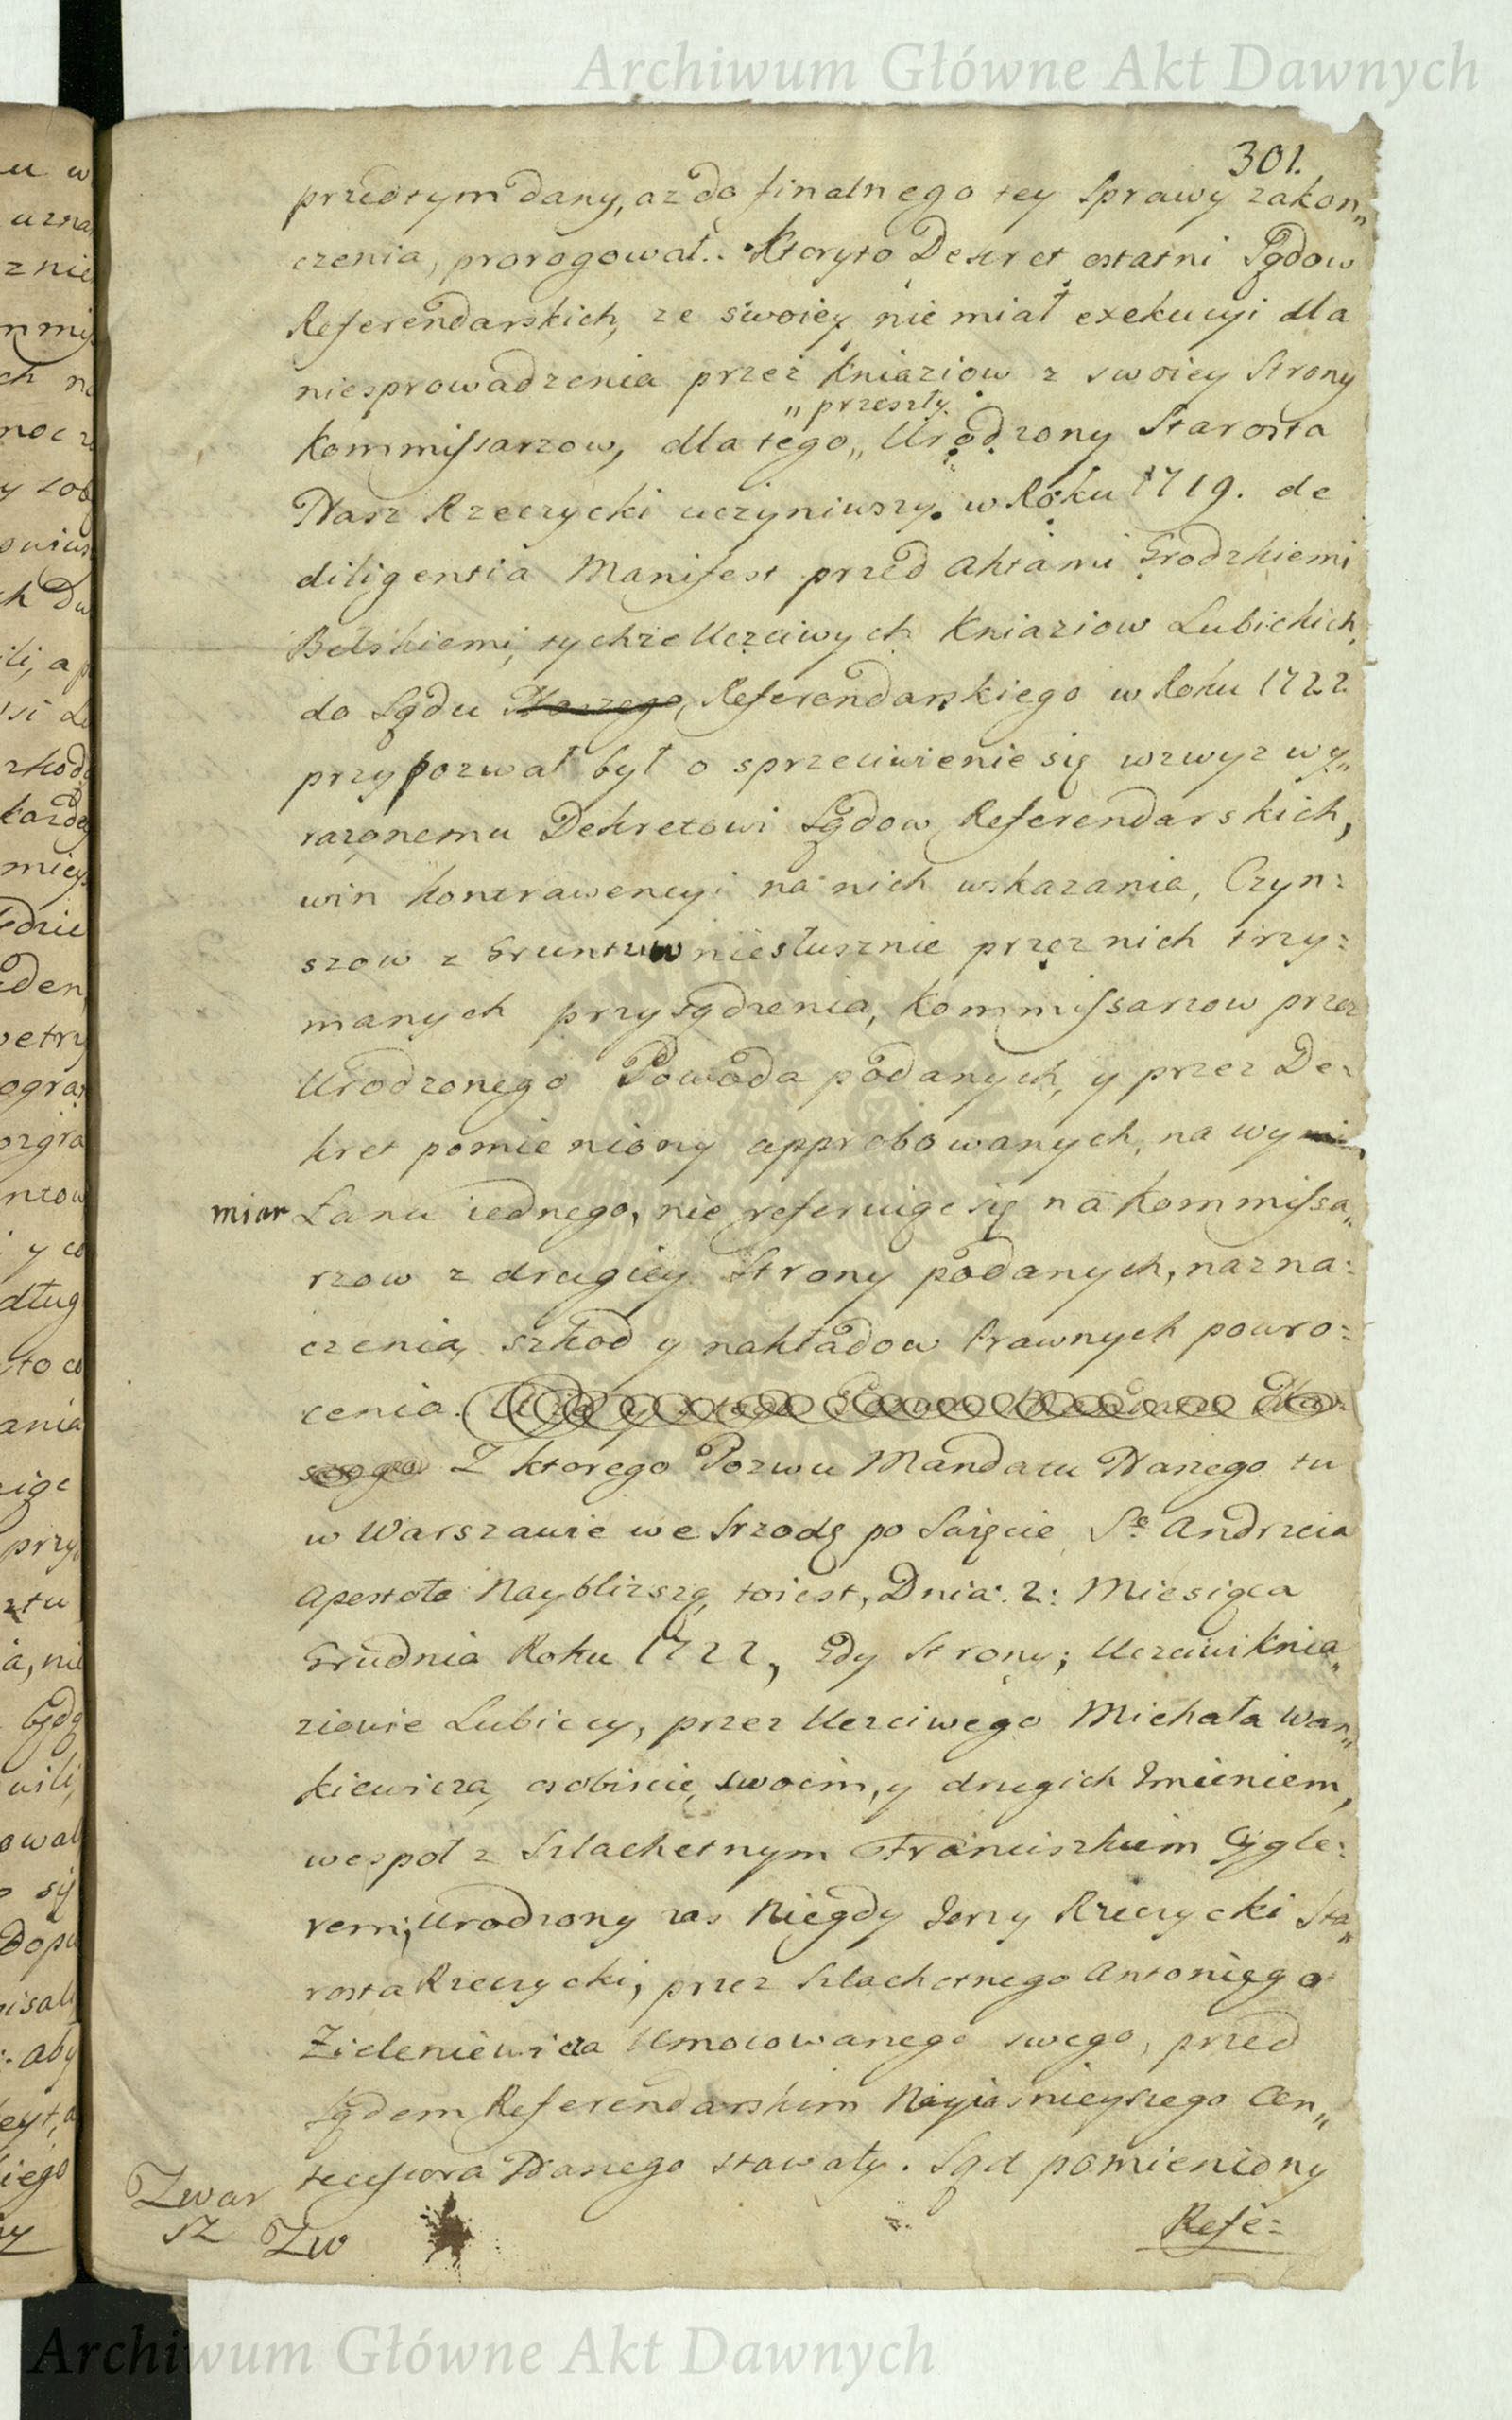 Archiwum Główne Akt Dawnych
301.
przedtym dany, az do finalnego tey Sprawy zakon„
czenia, prorogował. Ktoryto Dekret ostatni Sądow
Referendarskich, ze swoiey nie miał exekucyi dla
niesprowadzenia przez Kniaziow z swoiey Strony
„ przeszły
Kommissarzow, dla tego „ Urodzony Starosta
Nasz Rzeczycki uczyniwszy w Roku 1719. de
diligentia Manifest przed Aktami Grodzkiemi
Bełskiemi, tychze Uczciwych Kniaziow Lubickich,
do Sądu Naszego, Referendarskiego w Roku 1722
przypozwał był o sprzeciwienie się wzwyz wy„
razonemu Dekretowi Sądow Referendarskich,
win kontrawencyi na nich wskazania, Czyn:
szow z Gruntuw niesłusznie przez nich trzy:
manych przysądzenia, Kommissarzow przez
Urodzonego Powoda podanych, y przez De:
kret pomieniony approbowanych, na wy
miar Łanu iednego, nie referuiąc się na Kommissa„
rzow z drugiey Strony podanych, nazna:
czenia, szkod y nakładow Prawnych powro:
cenia.
Z ktorego Pozwu Mandatu Naszego tu
w Warszawie we Srzodę po Swięcie Sgo Andrzeia
Apostoła Naybliższą, toiest, Dnia: 2: Miesiąca
Grudnia Roku 1722, Gdy Strony; Uczciwi Knia„
ziowie Lubiccy, przez Uczciwego Michała Wan„
kiewicza, osobiscie, swoim, y drugich Imieniem,
wespoł z Szlachetnym Franciszkiem Cygle:
rem; Urodzony zas Niegdy Jerzy Rzeczycki Sta„
rosta Rzeczycki, przez Szlachetnego Antoniego
Zieleniewicza Umocowanego swego, przed
Sądem Referendarskim Nayiasnieyszego An„
tecessora Naszego stawały. Sąd pomieniony
Refe:
Zwar
sz Zw
Archiwum Główne Akt Dawnych